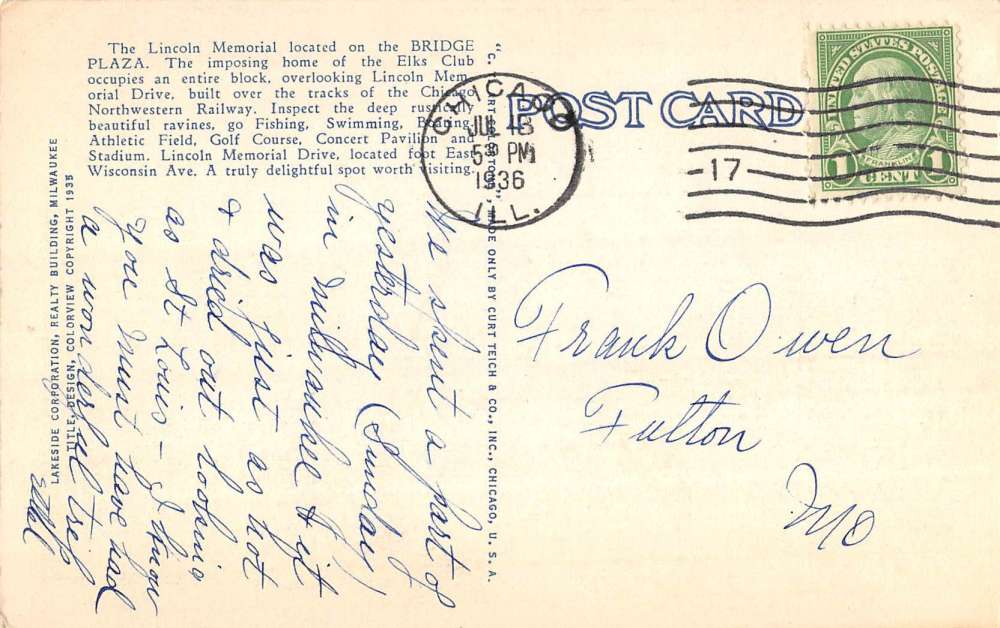 The Lincoln Memorial located on the BRIDGE
PLAZA. The imposing home of the Elks Club
occupies an entire block, overlooking Lincoln Mem-
orial Drive, built over the tracks of the Chicago
Northwestern Railway. Inspect the deep rustically
beautiful ravines, go Fishing, Swimming, Boating,
Athletic Field, Golf Course, Concert Pavilion and
Stadium. Lincoln Memorial Drive, located foot East
Wisconsin Ave. A truly delightful spot worth visiting.
LAKESIDE CORPORATION, REALTY BUILDING, MILWAUKEE
TITLE, DESIGN, COLORVIEW COPYRIGHT 1935
We spent a part of
yesterday (Sunday)
in Milwaukee & it
was just as hot
& dried out looking
as St Louis - I know
you must have had
a wonderful trip
Ethel
MADE ONLY BY CURT TEICH & CO., INC., CHICAGO, U. S. A.
POST CARD
CHICAGO
JUL
PM
1936
ILL.
17
UNITED STATES POSTAGE
FRANKLIN
1 CENT 1
Frank Owen
Fulton
Mo